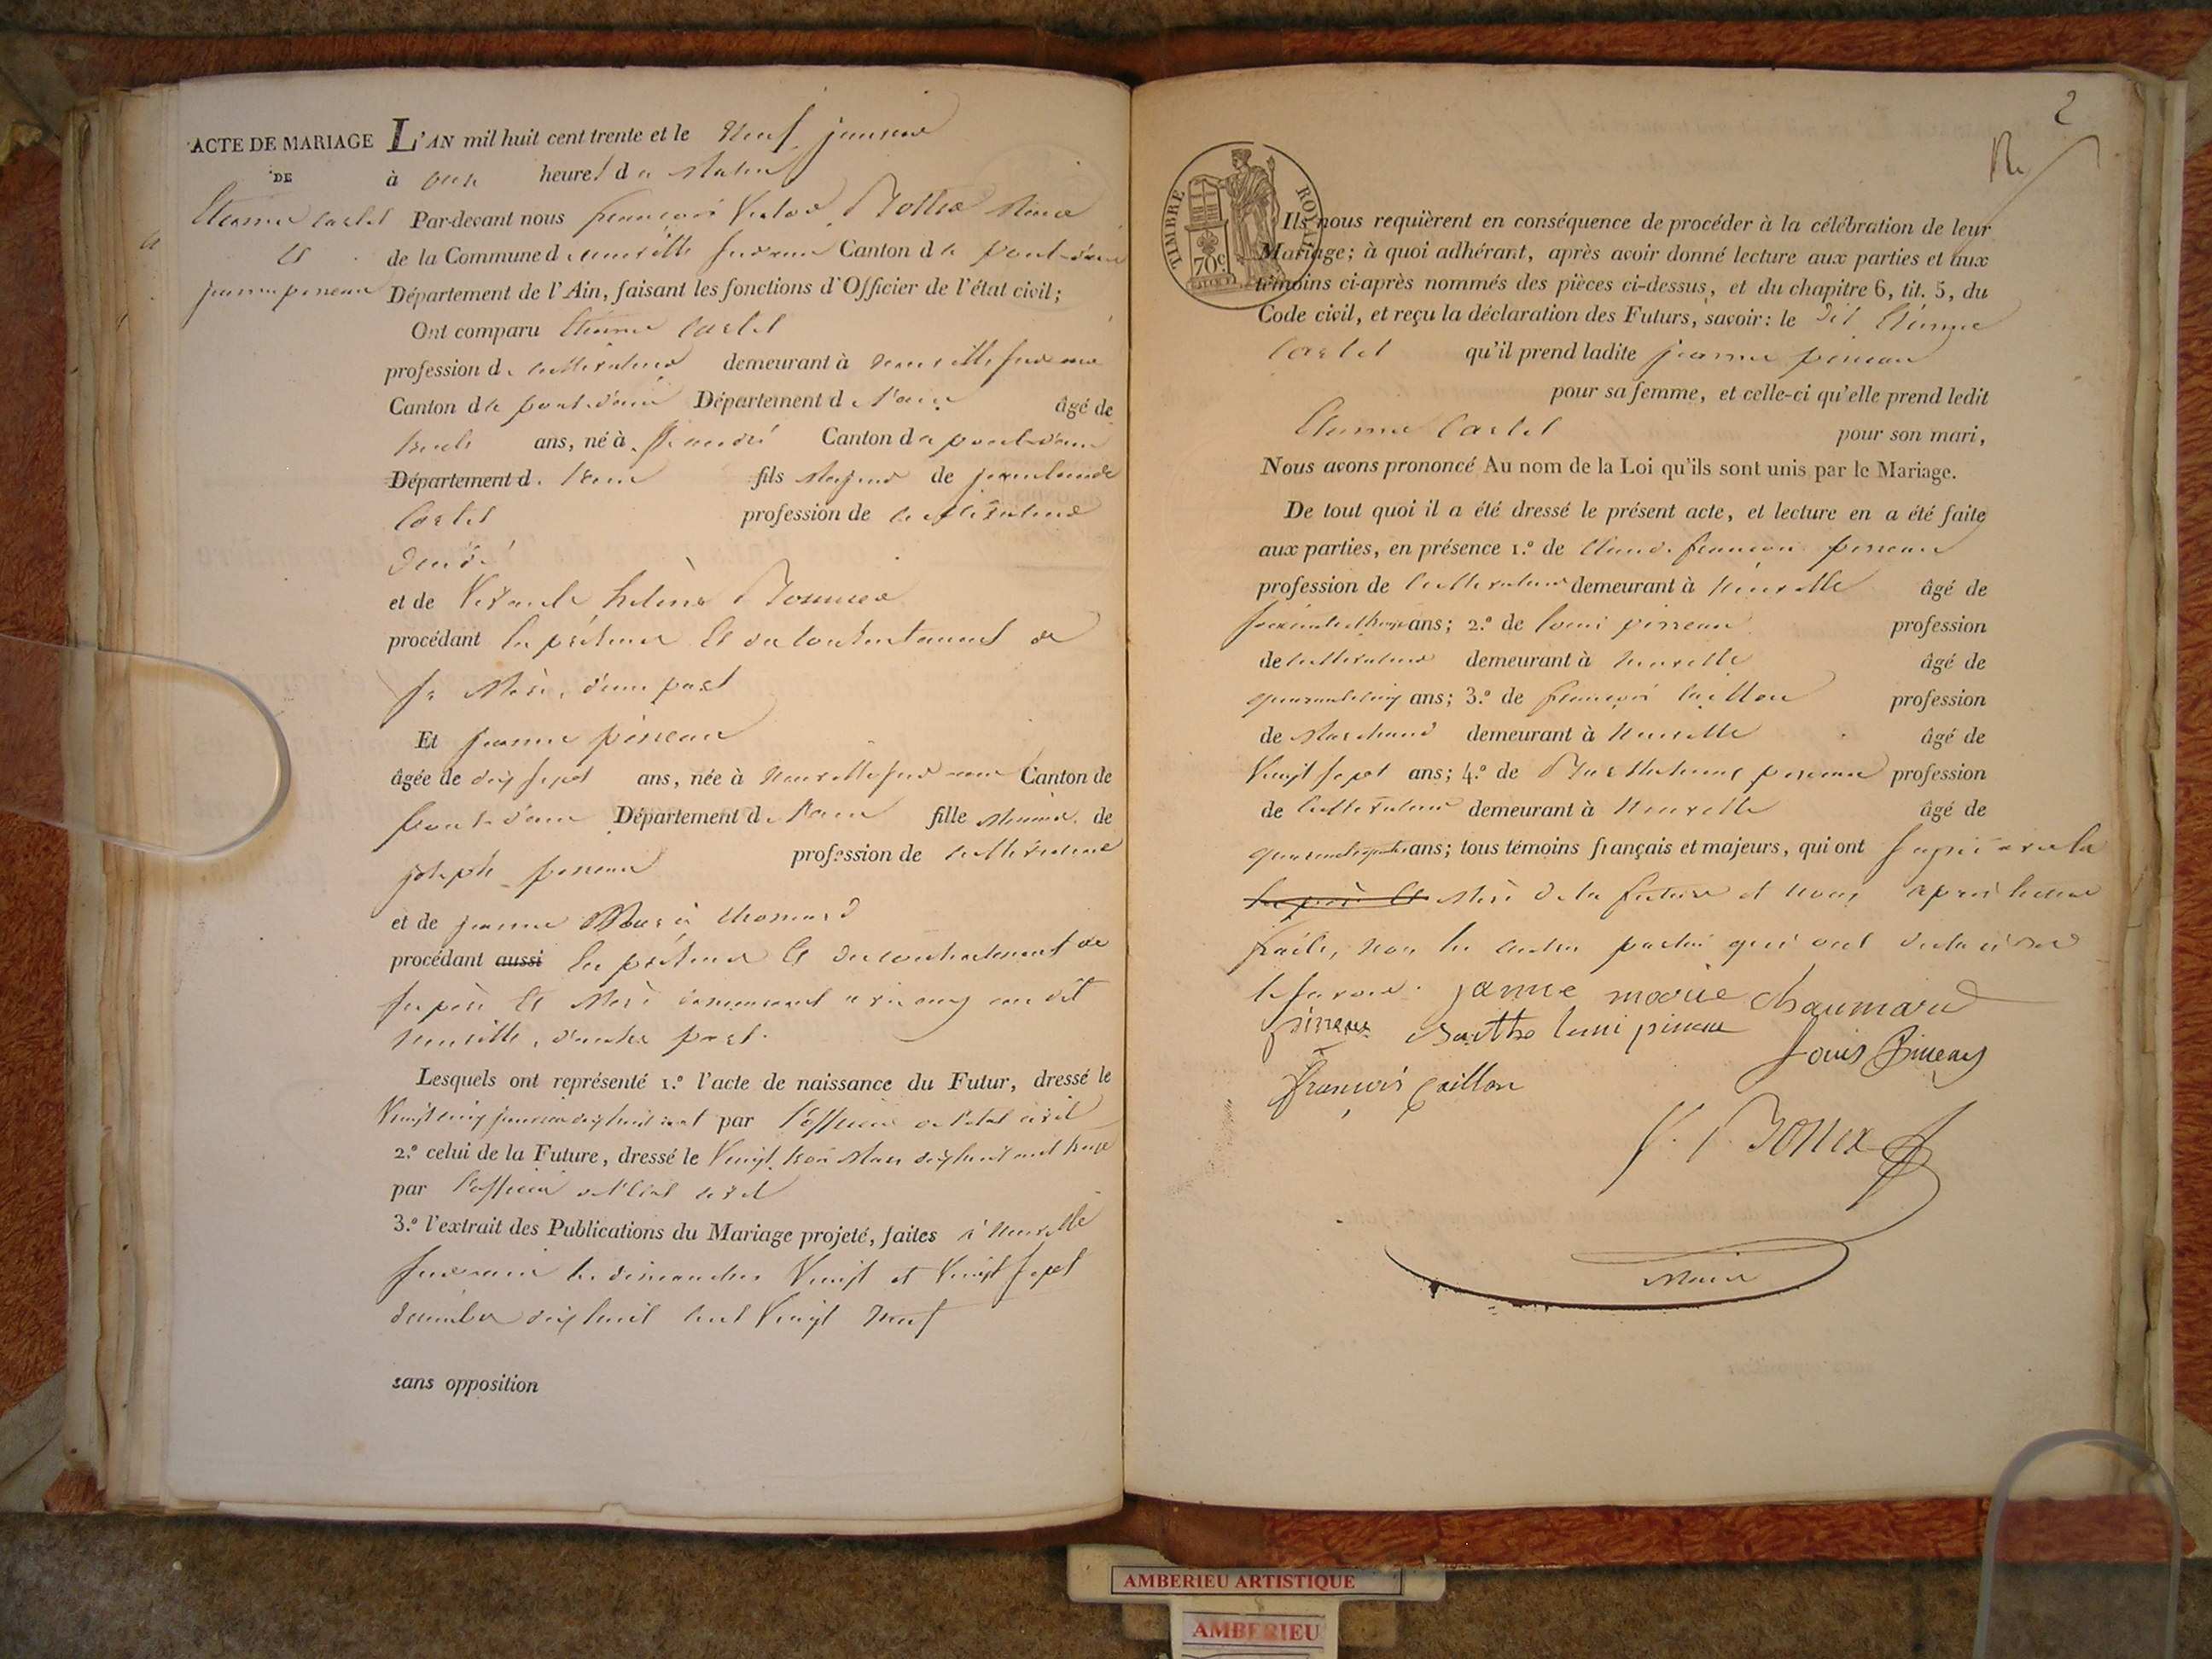 ACTE DE MARIAGE
DE
Etienne Castel
Et
jeanne pineau
L'AN mil huit cent trente et le Neuf janvier
à onze heures du Matin
Par-devant nous françois Victor Maire
de la Commune de neuville sur ain Canton de pont-d'ain
Département de l'Ain, faisant les fonctions d'Officier de l'état civil;
Ont comparu Etienne Castel
profession de cultivateur demeurant à neuville sur ain
Canton de pont-d'ain Département de l'ain âgé de
trente ans, né à Canton de pont-d'ain
Département d. l'ain fils Majeur de jean claude
Castel profession de cultivateur
et de hélène
procédant
sa Mère, d'une part
Et jeanne pineau
âgée de dix sept ans, née à Neuville sur ain Canton de
pont-d'ain Département d. l'ain fille Mineure de
joseph pineau profession de cultivateur
et de jeanne Marie chomard
procédant aussi les présence Et du contentement de
ses père Et Mère demeurant
Neuville, d'autre part.
Lesquels ont représenté 1.º l'acte de naissance du Futur, dressé le
Vingt cinq janvier dix huit cent par l'officier de l'état civil
2.º celui de la Future, dressé le Vingt trois Mars dix huit cent
par l'officier de l'état civil
3.º l'extrait des Publications du Mariage projeté, faites à Neuville
sur ain les dimanches Vingt et Vingt sept
décembre dix huit cent Vingt Neuf
sans opposition
2
TIMBRE ROYAL
70c.
Ils nous requièrent en conséquence de procéder à la célébration de leur
Mariage; à quoi adhérant, après avoir donné lecture aux parties et aux
témoins ci-après nommés des pièces ci-dessus, et du chapitre 6, tit. 5, du
Code civil, et reçu la déclaration des Futurs, savoir: le dit Etienne
Castel qu'il prend ladite jeanne pineau
pour sa femme, et celle-ci qu'elle prend ledit
Etienne Castel pour son mari,
Nous avons prononcé Au nom de la Loi qu'ils sont unis par le Mariage.
De tout quoi il a été dressé le présent acte, et lecture en a été faite
aux parties, en présence 1.º de Claude françois pineau
profession de cultivateur demeurant à Neuville âgé de
ans; 2.º de louis pineau profession
de cultivateur demeurant à Neuville âgé de
quarante cinq ans; 3.º de françois caillon profession
de Marchand demeurant à Neuville âgé de
Vingt sept ans; 4.º de pineau profession
de cultivateur demeurant à Neuville âgé de
ans; tous témoins français et majeurs, qui ont signé avec la
les père Et Mère de la future et nous, après lecture
faite, non les autres parties qui ont déclaré ne
le savoir. janne marie chaumard
pineau Barthelemi pineau Louis Pineau
françois Caillon
Maire
AMBERIEU ARTISTIQUE
AMBERIEU